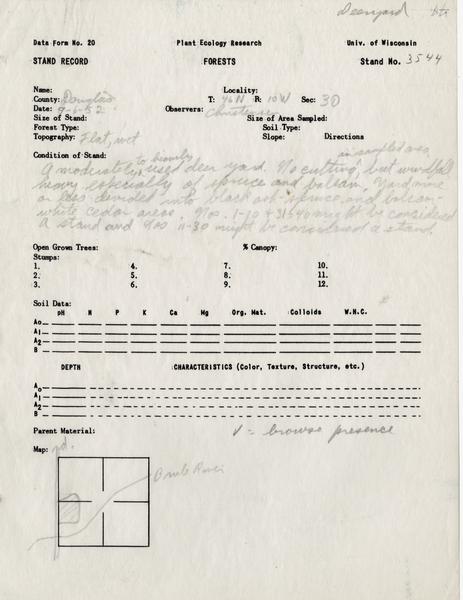 Deeryard
Data Form No. 20 Plant Ecology Research Univ. of Wisconsin
STAND RECORD FORESTS Stand No. 3544
Name: Locality:
County: Douglas T: 46N R: 10W Sec: 30
Date: 9-6-52 Observers: Christensen
Size of Stand: Size of Area Sampled:
Forest Type: Soil Type:
Topography: Flat, wet Slope: Directions
Condition of Stand: to heavily in sampled area,
A moderately used deer yard. No cutting, but windfall
heavy especially of spruce and balsam. Yard more
or less divided into black ash-spruce, and balsam-
white cedar areas. Nos. 1-10 & 31-40 might be considered
a stand and Nos 11-30 might be considered a stand.
Open Grown Trees: % Canopy:
Stumps:
1. 4. 7. 10.
2. 5. 8. 11.
3. 6. 9. 12.
Soil Data:
pH N P K Ca Mg Org. Mat. Colloids W.H.C.
Ao
A1
A2
B
DEPTH CHARACTERISTICS (Color, Texture, Structure, etc.)
Ao
A1
A2
B
Parent Material: v = browse presence
Map:
Brule River